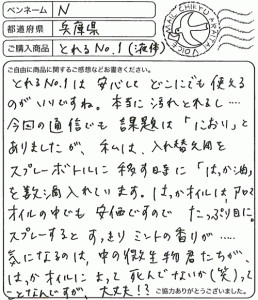 ペンネーム N
都道府県 兵庫県
ご購入商品 とれるNo.1(液体)
ご自由に商品に関するご感想などお書きください。
とれるNo.1は 安心して どこにでも 使える
のが いいですね。本当に 汚れとれるし....
今回の通信でも 課題は「におい」と
ありましたが、私は、入れ替え用を
スプレーボトルに 移す時に 「はっか油」
を数滴入れています。はっかオイルは、アロマ
オイルの中でも 安価ですので たっぷり目に。
スプレーすると すっきり ミントの香りが.....
気になるのは、中の微生物君たちが、
はっかオイルに よって 死んでないか(笑)って
ことなんですが、大丈夫!?
ご協力ありがとうございました。